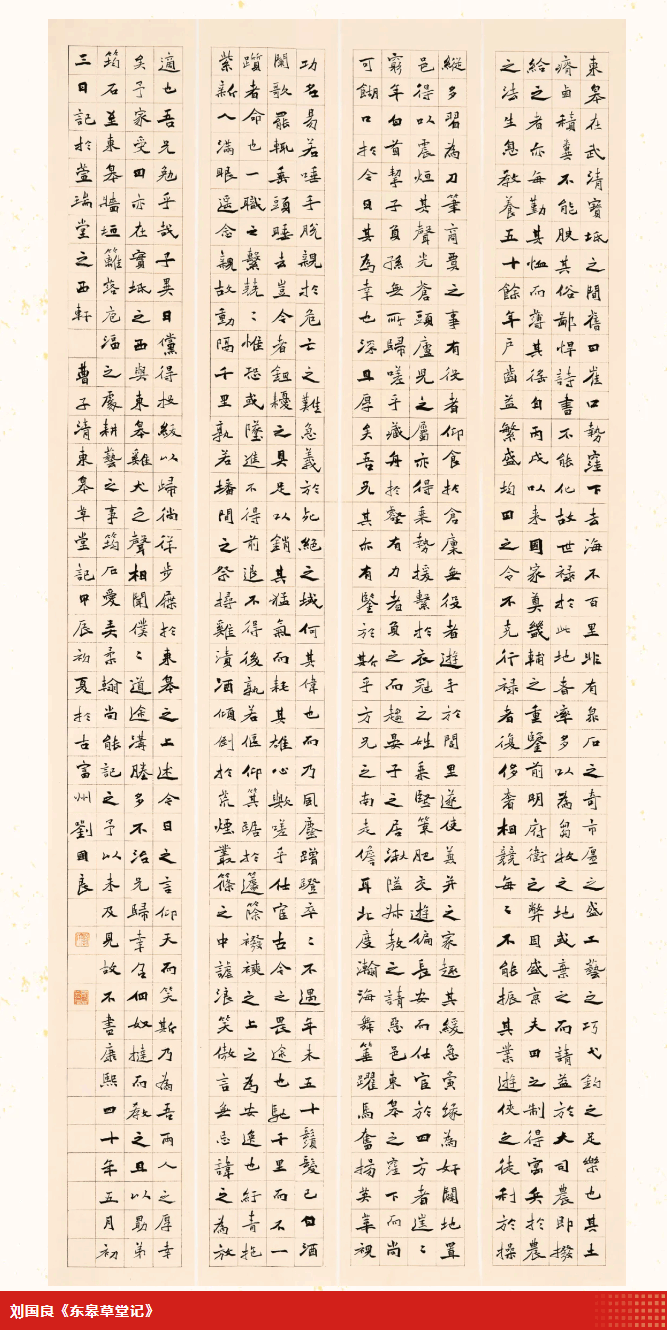 東皋在武清寶坻之間舊曰崔口勢窪下去海不百里非有泉石之奇市廛之盛工藝之巧弋釣之足樂也其土
瘠鹵積糞不能腴其俗鄙悍詩書不能化故世祿於此地者率多以為芻牧之地或棄之而請益於大司農即撥
給之者亦每勤其恤而薄其徭自丙戌以來國家奠畿輔之重鑒前明府衛之弊因盛京夫田之制得富矣於農
之法生息敎養五十餘年戶齒益繁盛均田之令不克行祿者復侈奢相競每〻不能振其業遊俠之徒利於操
縱多習為刀筆商賈之事有役者仰食於倉廩無役者遊手於閭里遂使兼并之家趣其緩急夤緣為奸闢地置
邑得以震烜其聲光蒼頭廬兒之屬亦得乘勢援繫於衣冠之姓乘堅策肥交遊徧長安而仕宦於四方者遑〻
窮年白首挈子負孫無所歸嗟乎藏舟於壑有力者負之而趨晏子之居湫隘叔敖之請惡邑東皋之窪下而尚
可餬口於今日其為幸也深且厚矣吾兄其亦有鑒於斯乎方兄之南走儋耳北度瀚海舞箠躍馬奮揚英華視
功名易若唾手脫親於危亡之難急義於死絕之域何其偉也而乃風塵蹭蹬卒〻不遇年未五十鬚髮已白酒
闌歌罷輒垂頭睡去豈令者鉏耰之具足以銷其猛氣而耗其雄心歟嗟乎仕宦古今之畏途也馳千里而不一
躓者命也一職之繫兢〻惟恐或墜進不得前退不得後孰若偃仰箕踞於籧篨襏襫之上之為安逸也紆青拖
紫新人滿眼遥念親故動隔千里孰若墦間之祭擣雞漬酒傾倒於荒煙叢篠之中謔浪笑傲言無忌諱之為放
適也吾兄勉乎哉子異日儻得投紱以歸徜徉步屧於東皋之上述今日之言仰天而笑斯乃為吾兩人之厚幸
矣予家受田亦在寶坻之西與東皋雞犬之聲相聞僕〻道途溝塍多不治兄歸幸召佃奴撻而敎之且以勗弟
筠石並東皋牆垣籬落庖湢之處耕藝之事筠石愛弄柔翰尚能記之予以未及見故不書康熙四十年五月初
三日記於萱瑞堂之西軒 曹子清東皋草堂記甲辰初夏於古富州劉國良
刘国良《东皋草堂记》